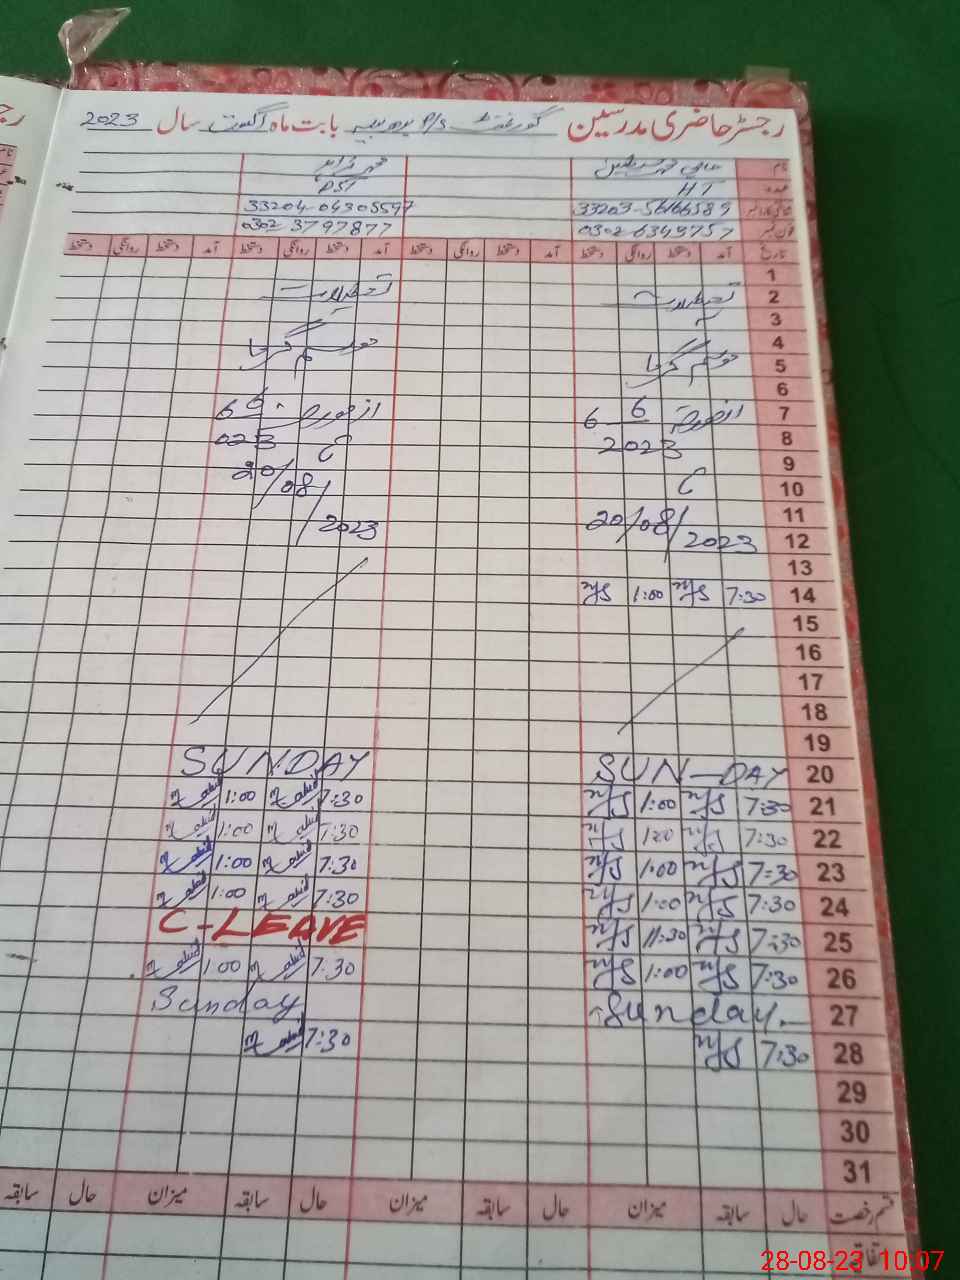 رجسٹر حاضری مدرسین گورنمنٹ P/S بابت ماہ اگست سال 2023
نام
عہدہ HT PST
شناختی کارڈ نمبر 33203-56166589 33204-04305597
فون نمبر 0302 6349757 0302 3797877
تاریخ آمد دستخط روانگی دستخط آمد دستخط روانگی دستخط آمد دستخط روانگی دستخط آمد دستخط روانگی دستخط
1
2 تعطیلات تعطیلات
3
4
5 موسم گرما موسم گرما
6
7 از مورخہ 6 6 از مورخہ 6 6
8 2023 023
9
10 20/08/
11 20/08/ 2023
12 2023
13
14 7:30 M/S 1:00 M/S
15
16
17
18
19
20 SUN-DAY SUNDAY
21 7:30 M/S 1:00 M/S 7:30 1:00
22 7:30 M/S 1:00 M/S 7:30 1:00
23 7:30 M/S 1:00 M/S 7:30 1:00
24 7:30 M/S 1:00 M/S 7:30 1:00
25 7:30 M/S 11:30 M/S C-LEAVE
26 7:30 M/S 1:00 M/S 7:30 1:00
27 Sunday Sunday
28 7:30 M/S 7:30
29
30
31
قسم رخصت حال سابقہ میزان حال سابقہ میزان حال سابقہ میزان حال سابقہ
28-08-23 10:07